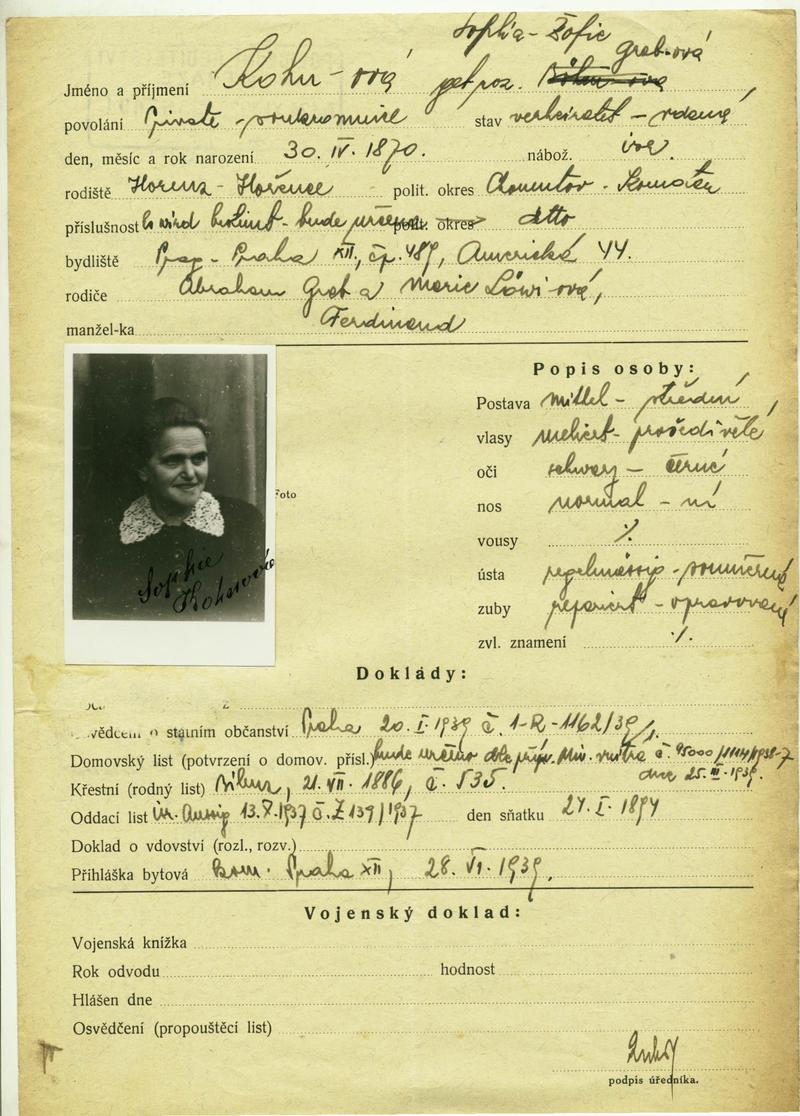 Sophia - Žofie
Jméno a příjmení Kohn-ová roz. Grab-ová
povolání Private - soukromnice stav verheiratet - vdaná
den, měsíc a rok narození 30. IV. 1870. nábož.
rodiště Horenz - Hořence polit. okres Chomutov - Komotau
příslušnost wird bestimt - bude určena polit. okres detto
bydliště Prag - Praha XII., čp. 489, Americká 44.
rodiče Abraham Grab a Marie Löwi-ová,
manžel-ka Ferdinand
Popis osoby:
Postava mittel - střední
vlasy meliert - prošedivělé
oči schwarz - černé
nos normal - ní
vousy ./.
Foto
ústa regelmässig - souměrná
zuby repariert - opravované
zvl. znamení ./.
Sophie
Kohnová
Doklady:
vědčení o státním občanství Praha 20. I. 1939 č. 1-R-1162/39
Domovský list (potvrzení o domov. přísl.) bude určeno dle příp. Min. vnitra č.
dne 25. III. 1939.
Křestní (rodný list) Bilin, 21. VII. 1886, č. 535.
Oddací list Aussig 13. X. 1937 č. Z 139/1937 den sňatku 27. I. 1894
Doklad o vdovství (rozl., rozv.)
Přihláška bytová kom. Praha XII, 28. VI. 1939.
Vojenský doklad:
Vojenská knížka
Rok odvodu hodnost
Hlášen dne
Osvědčení (propouštěcí list)
podpis úředníka.